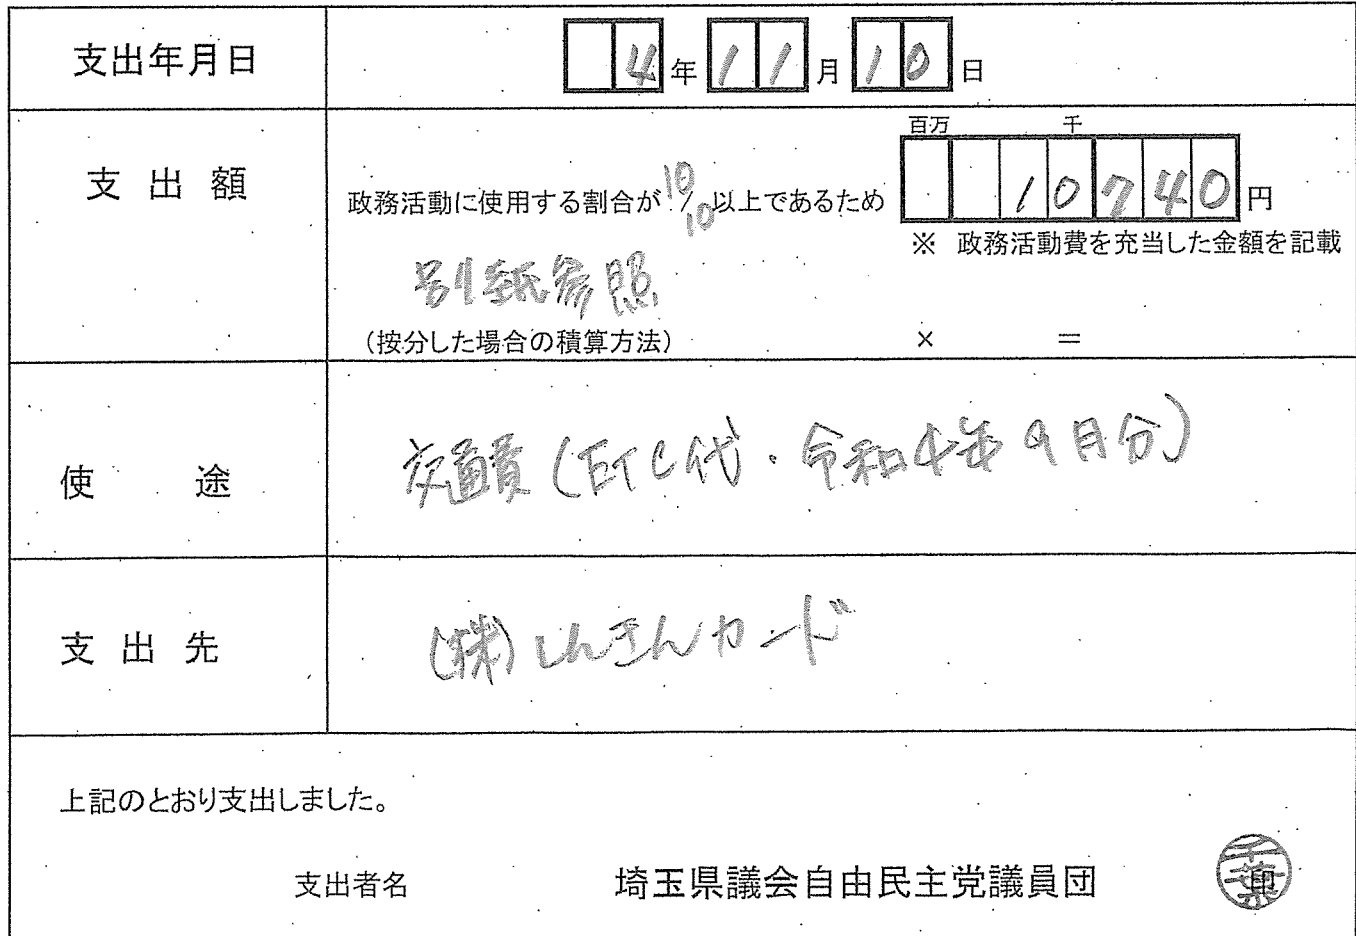 支出年月日 4年11月10日
百万 千
支出額 政務活動に使用する割合が10/10以上であるため 10740円
※ 政務活動費を充当した金額を記載
別紙参照
(按分した場合の積算方法) × =
使途 交通費(ETC代・令和4年9月分)
支出先 (株)しんきんカード
上記のとおり支出しました。
支出者名 埼玉県議会自由民主党議員団 印
千葉